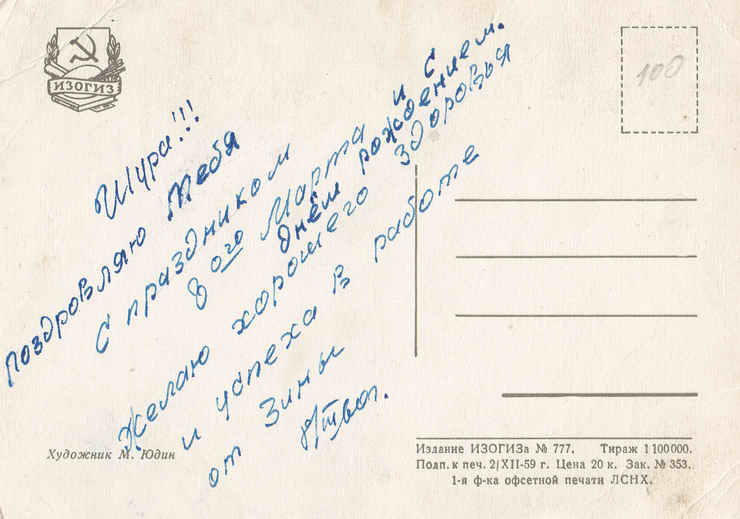 ИЗОГИЗ
100
Шура!!!
Поздровляю тебя
С праздником
8ого Марта и с
днём рождением.
Желаю хорошего здоровья
и успеха в работе
от Зины
Художник М. Юдин
Издание ИЗОГИЗа № 777. Тираж 1 100 000.
Подп. к печ. 2/XII-59 г. Цена 20 к. Зак. № 353.
1-я ф-ка офсетной печати ЛСНХ.